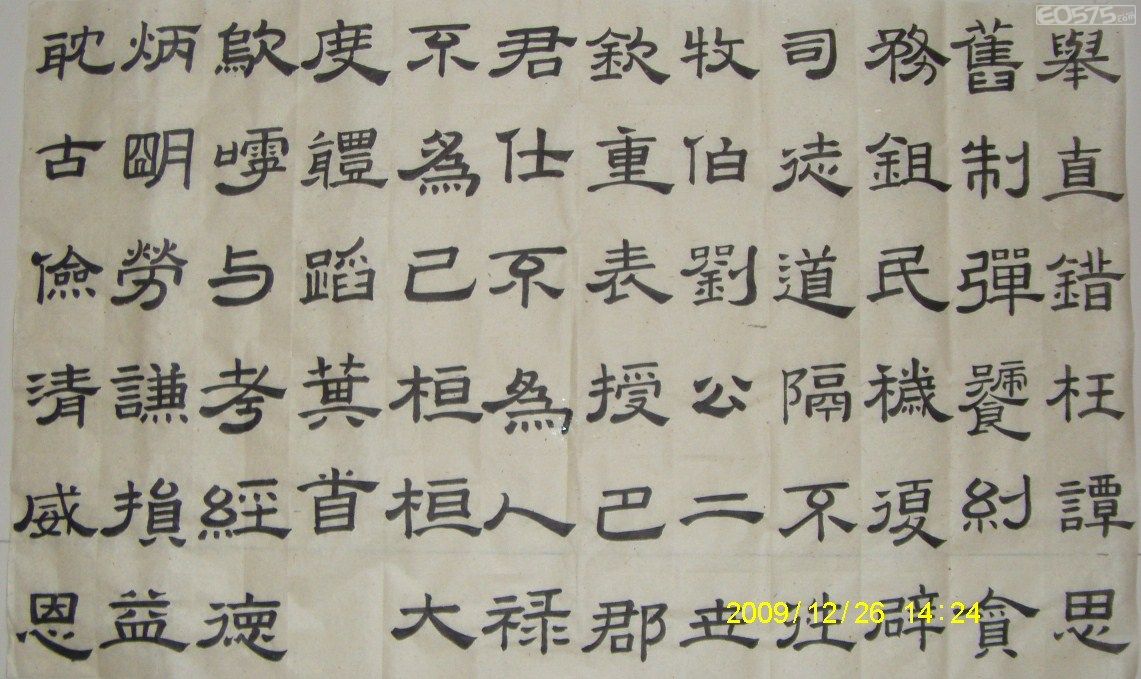 舉直錯枉譚思
舊制彈饕糾貪
務鉏民穢復辟
司徒道隔不往
牧伯劉公二世
欽重表授巴郡
君仕不為人祿
不為己桓桓大
度體蹈萁首
歍嘑与考經德
炳朙勞謙損益
耽古儉清威恩
2009/12/26 14:24
E0575.com